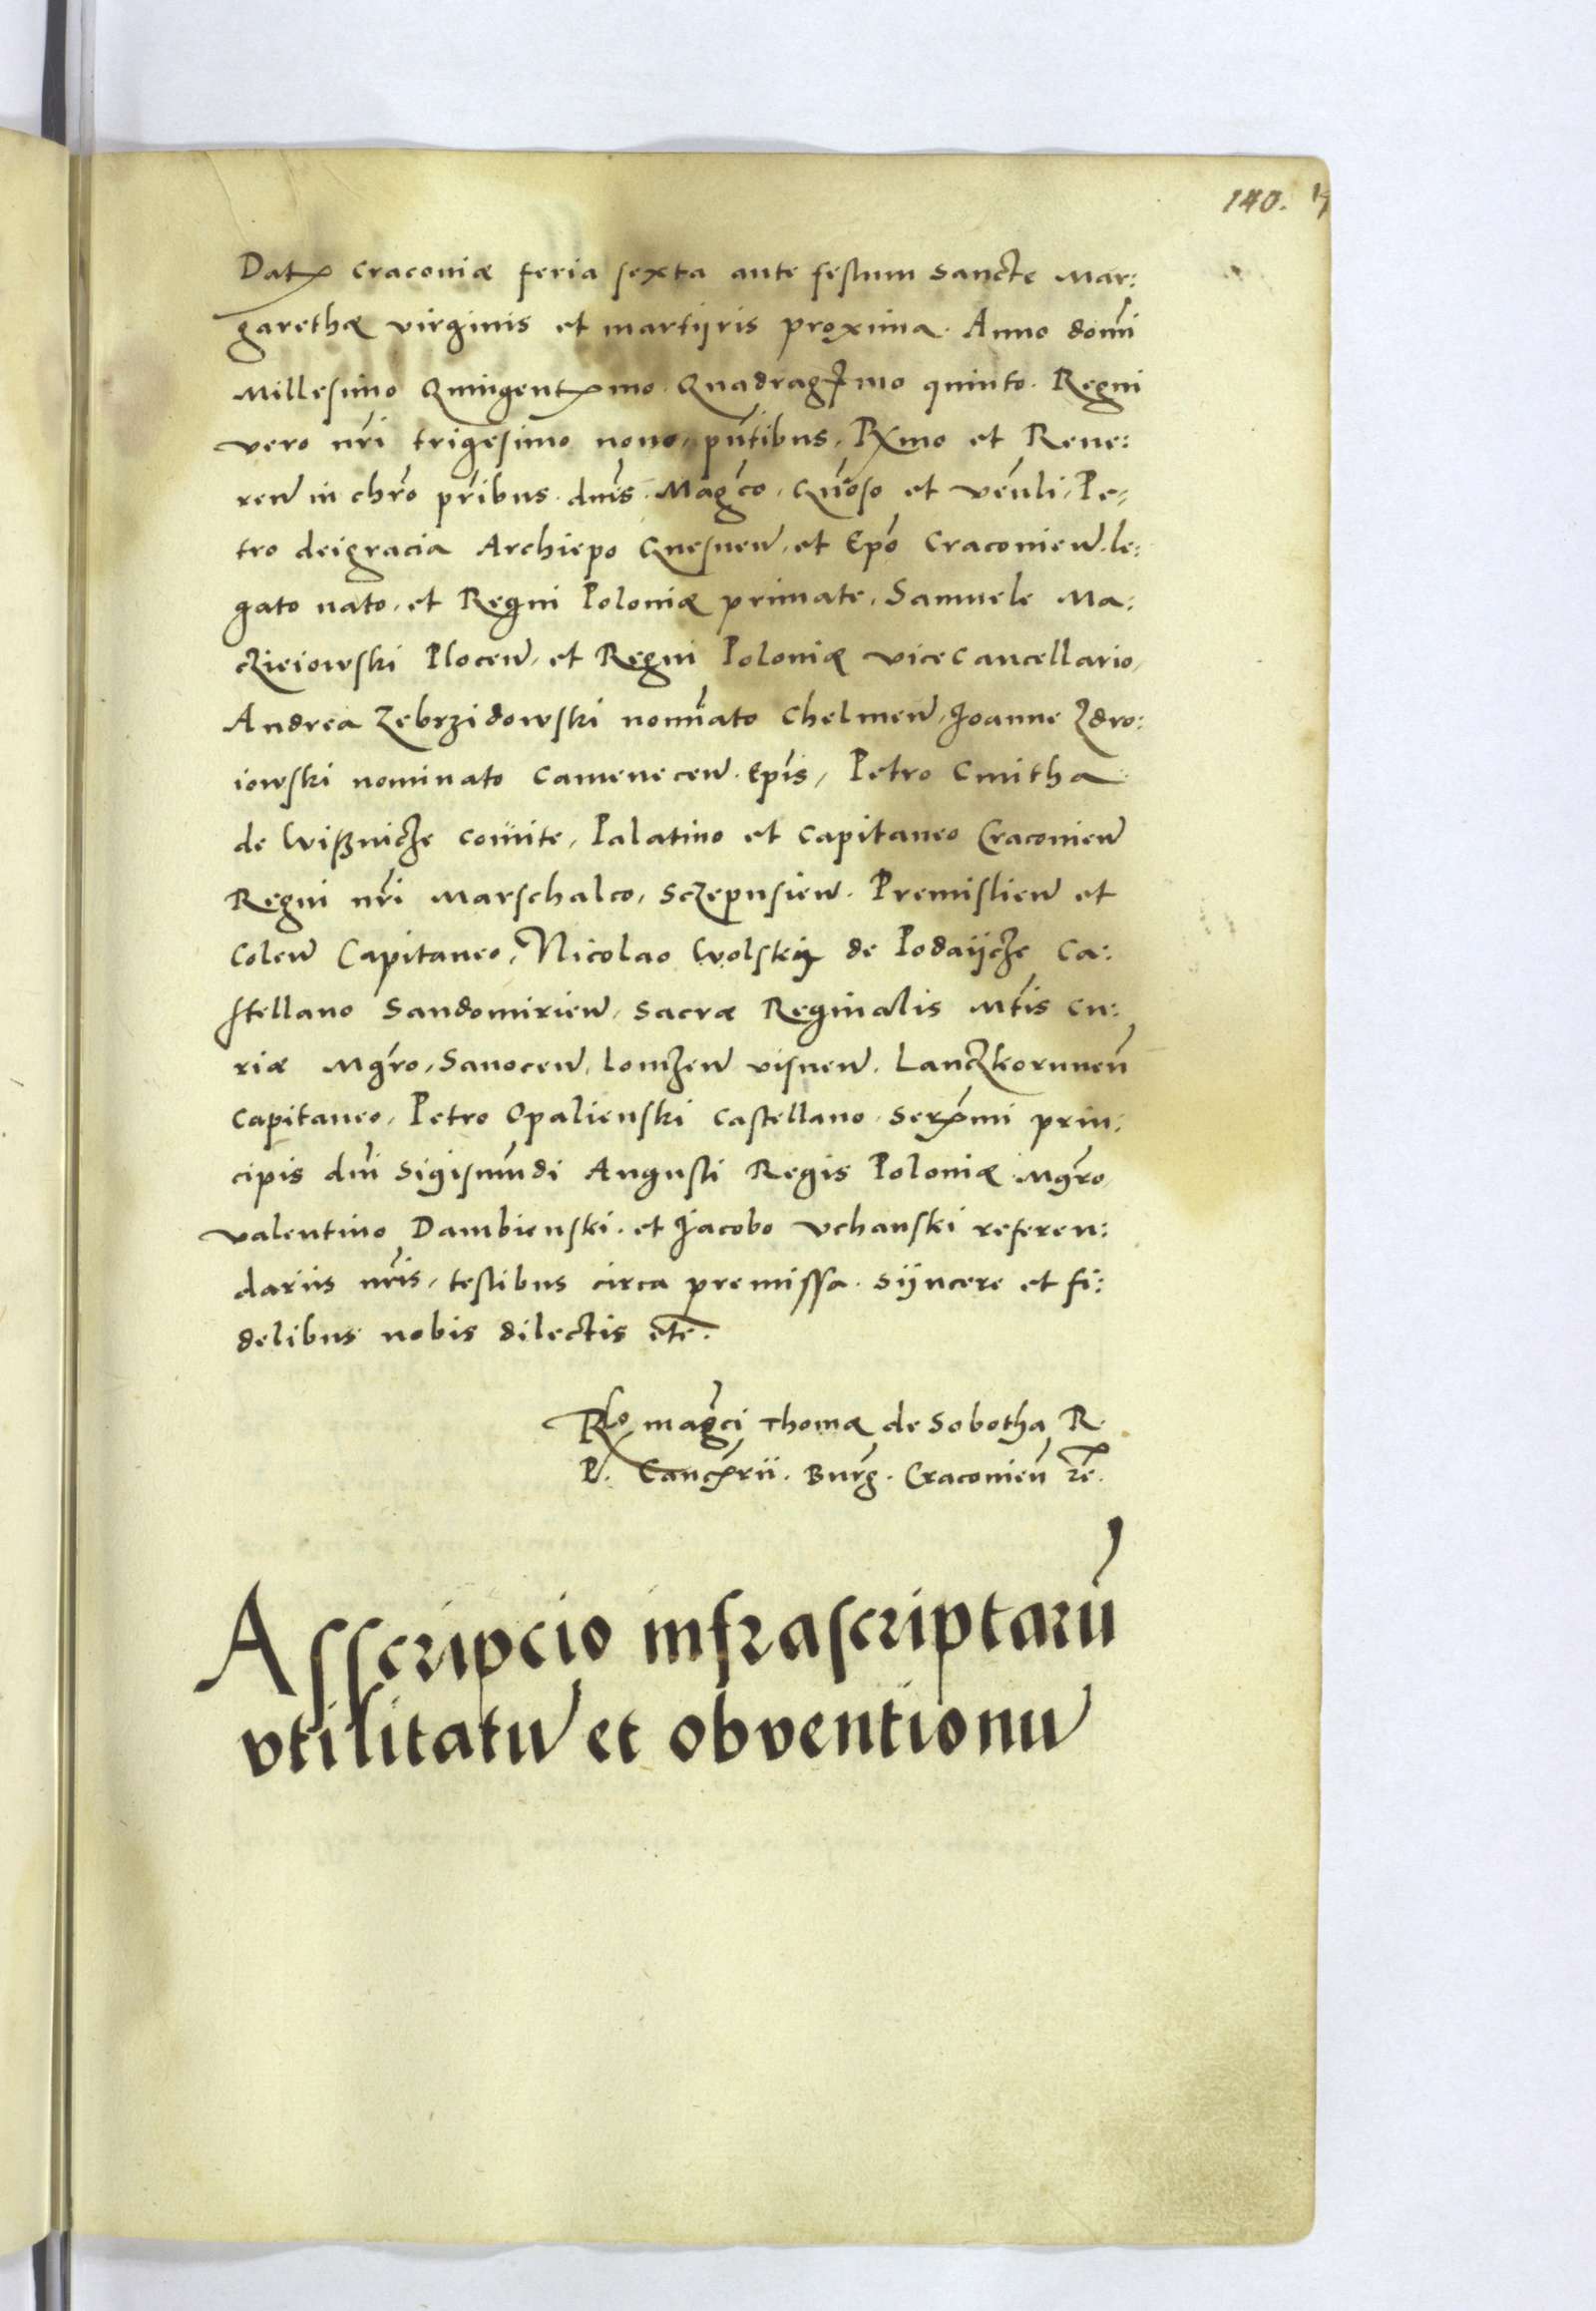 140.
Dat Craconiæ feria sexta ante festum Sancte Mar:
garethæ virginis et martijris proxima. Anno domi
Millesimo Quingentmo. Quadragmo quinto. Regni
vero nri trigesimo nono, pntibus, Rmo et Reue:
ren in chro pribus. dnis. Magco, Gnoso et venli, Pe-
tro deigracia Archiepo Gnesnen, et Epo Craconien. le:
gato nato, et Regni Poloniæ primate, Samuele Ma:
czieiowski Plocen, et Regni Poloniæ vicecancellario,
Andrea Zebrzidowski nominato Chelmen, Joanne Zdro:
iowski nominato Camenecen. Epis, Petro Cmitha
de Wißnicze comite, Palatino et Capitaneo Craconien
Regni nri Marschalco, Sczepusien. Premislien et
Colen Capitaneo, Nicolao Wolskij de Podaijcze Ca:
stellano Sandomirien, Sacræ Reginalis Mtis Cu:
riæ Mgro, Sanocen, Lomzen visnen. Lanczkorunen
Capitaneo, Petro Opalienski Castellano. Sermi prin,
cipis dni Sigismundi Augusti Regis Poloniæ Mgro,
valentino Dambienski. et Jacobo vchanski referen:
dariis nris, testibus circa premissa. sijncere et fi:
delibus nobis dilectis etc.
Rlo magci Thomæ de Sobotha R.
P. Cancrii. Burg. Craconien zc.
Asscripcio infrascriptarū
vtilitatū et obventionū